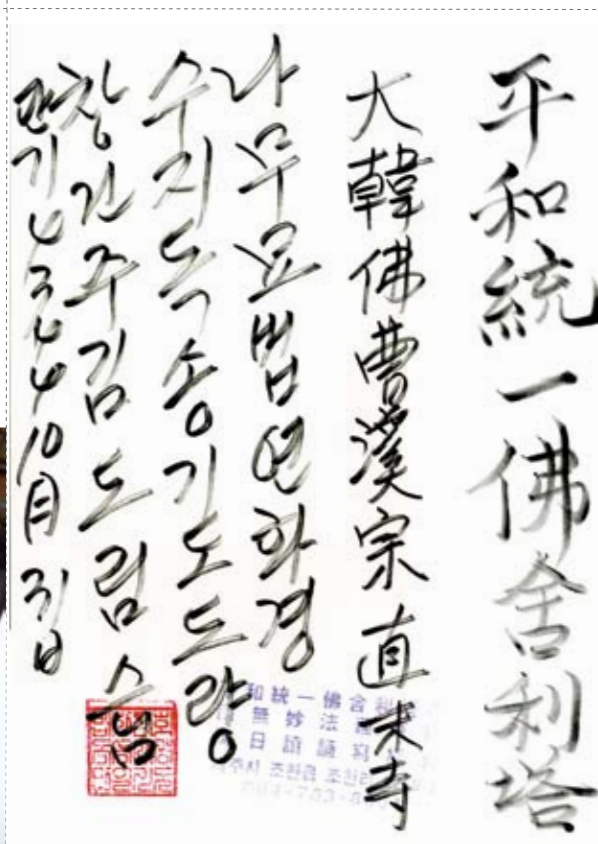 平和統一佛舍利塔
大韓佛曹溪宗直末寺
나무묘법연화경
수지독송기도도량
창건주김도림스님
단기4344 10月 집
和統一佛舍利
無妙法
日 誦寫
주시 조천읍 조천리